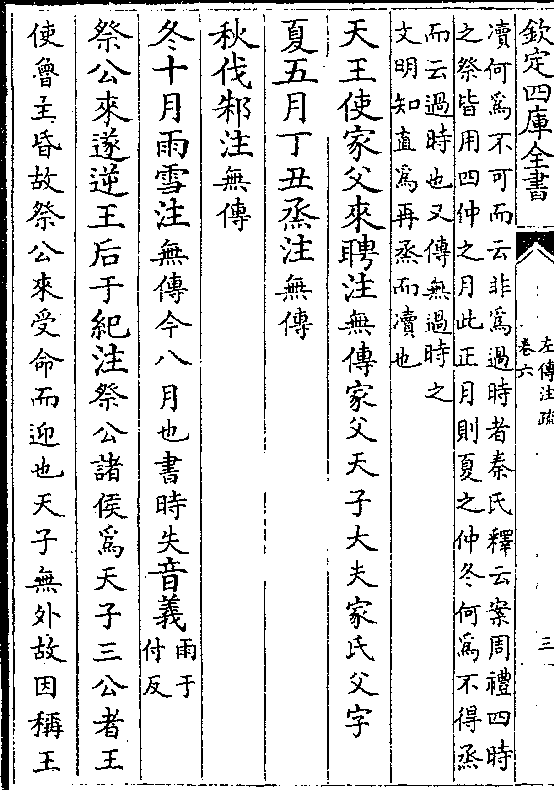 欽定四庫全書
左傳注疏
卷六
三
凟何為不可而云非為過時者秦氏釋云案周禮四時
之祭皆用四仲之月此正月則夏之仲冬何為不得烝
而云過時也又傳無過時之
文明知直為再烝而凟也
天王使家父來聘注無傳家父天子大夫家氏父字
夏五月丁丑烝注無傳
秋伐邾注無傳
冬十月雨雪注無傳今八月也書時失音義雨于
付反
祭公來遂逆王后于紀注祭公諸侯為天子三公者王
使魯主昏故祭公來受命而迎也天子無外故因稱王